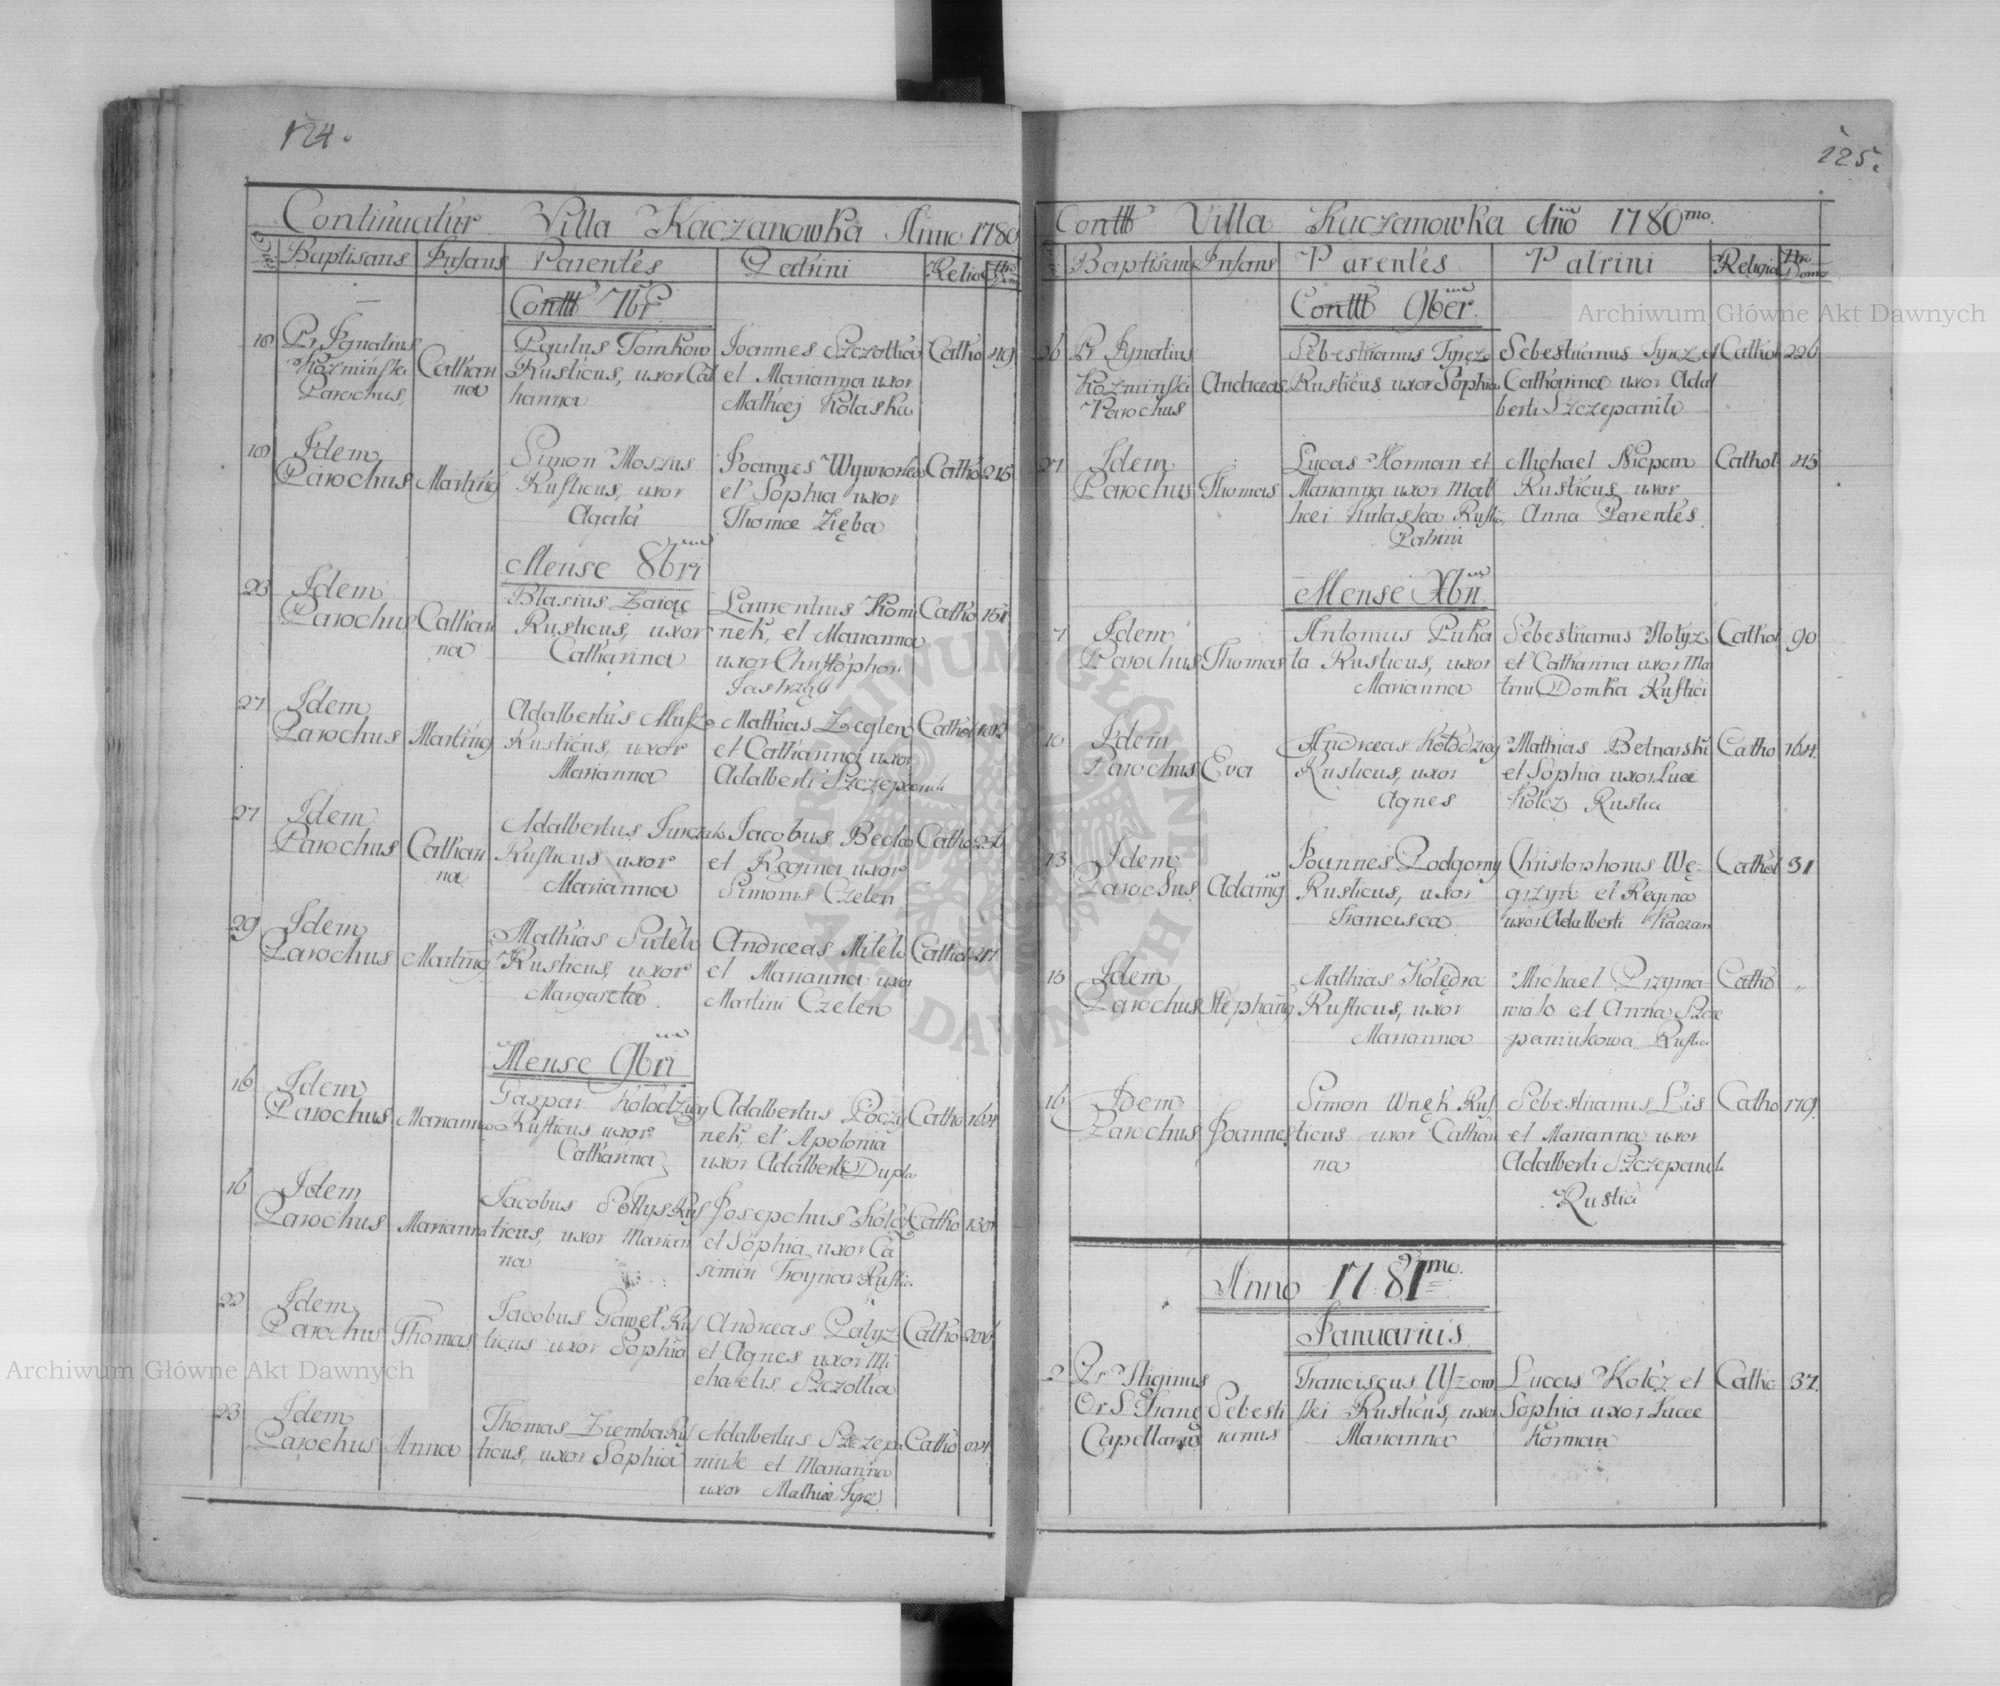 124.
Continuatur Villa Kaczanowka Anno 1780
Baptisans Infans Parentes Patrini Religio Nro Dom
Contttt 7br
18 Pr Ignatius Kozminski Parochus, Catharina
Paulus Tomkow
Rusticus, uxor Cat
hanna
Joannes Szczotka
et Marianna uxor
Mathaej Kolaska
Catho 219
18 Idem Parochus Marting
Simon Moszus
Rusticus, uxor
Agata
Joannes Wywiorka
et Sophia uxor
Thomae Zięba
Catho 215
Mense 8bri
23 Idem Parochus Cathari
na
Blasius Zaiąc
Rusticus, uxor
Catharina
Laurentius Kom
nek, et Marianna
uxor Christophori
Jastrząb
Catho 151
27 Idem Parochus Marting
Adalbertus
Rusticus, uxor
Marianna
Mathias Zeglen
et Catharina uxor
Adalberti Szczepanik
Cathol
27 Idem Parochus Cathari
na
Adalbertus
Rusticus uxor
Marianna
Jacobus
et Regina uxor
Simonis Czelen
Catho
29 Idem Parochus Marting
Mathias
Rusticus, uxor
Margareta
Andreas Mitek
et Marianna uxor
Martini Czelen
Cathol 217
Mense 9bri
16 Idem Parochus Marianna
Gaspar Kołodziey
Rusticus uxor
Catharina
Adalbertus Poczy
nek, et Apolonia
uxor Adalberti Dupla
Catho 164
16 Idem Parochus Marianna
Jacobus Rus
ticus, uxor Marian
na
Josephus Kołcz
et Sophia uxor Ca
simiri Rustic
Catho 130
22 Idem Parochus Thomas
Jacobus Gaweł Rus
ticus uxor Sophia
Andreas Pałyz
et Agnes uxor Mi
chaelis Szczotka
Catho
23 Idem Parochus Anna
Thomas Ziemba Rus
ticus, uxor Sophia
Adalbertus Szczepa
niuk et Marianna
uxor Mathiae Tyrcz
Catho
125.
Contttt Villa Kaczanowka Año 1780mo.
Baptisans Infans Parentes Patrini Religio Nro Domo
Contttt 9ber.
26 Pr Ignatius Kozminski Parochus Andreas
Sebestianus Tyrcz
Rusticus uxor Sophia
Sebestianus Tyrcz et
Catharina uxor Adal
berti Szczepanik
Cathol 226
27 Idem Parochus Thomas
Lucas Korman et
Marianna uxor Mat
haei Kulaska Rustici,
Patrini
Michael Niepan
Rusticus uxor
Anna Parentes.
Cathol 215
Mense Xbri
7 Idem Parochus Thomas
Antonius Puka
ta Rusticus, uxor
Marianna
Sebestianus Kołyz
et Catharina uxor Ma
Domka Rustici
Cathol 90
10 Idem Parochus Eva
Andreas Kołodziey
Rusticus, uxor
Agnes
Mathias Betnarski
et Sophia uxor Lucae
Kołcz Rustici
Catho 164.
13 Idem Parochus Adamg
Joannes Podgorny
Rusticus, uxor
Francisca
Christophorus Wę-
grzyn et Regina
uxor Adalberti Kaczan
Cathol 31
15 Idem Parochus Stephang
Mathias Kolędra
Rusticus, uxor
Marianna
Michael Przyma
wiało et Anna Szcze
paniukowa Rustic
Catho „
16 Idem Parochus Joannes
Simon Wnęk Rus
ticus uxor Cathari
na
Sebestianus Lis
et Marianna uxor
Adalberti Szczepanik
Rustici
Catho 179.
Anno 1781mo.
Januarius
2 Pr Higinus
Or S Franc
Capellanus
Sebesti
ianus
Franciscus Uszow
ski Rusticus, uxor
Marianna
Lucas Kołcz et
Sophia uxor Lucae
Korman
Catho 37.
Archiwum Główne Akt Dawnych
Archiwum Główne Akt Dawnych
ARCHIWUM GŁÓWNE AKT DAWNYCH